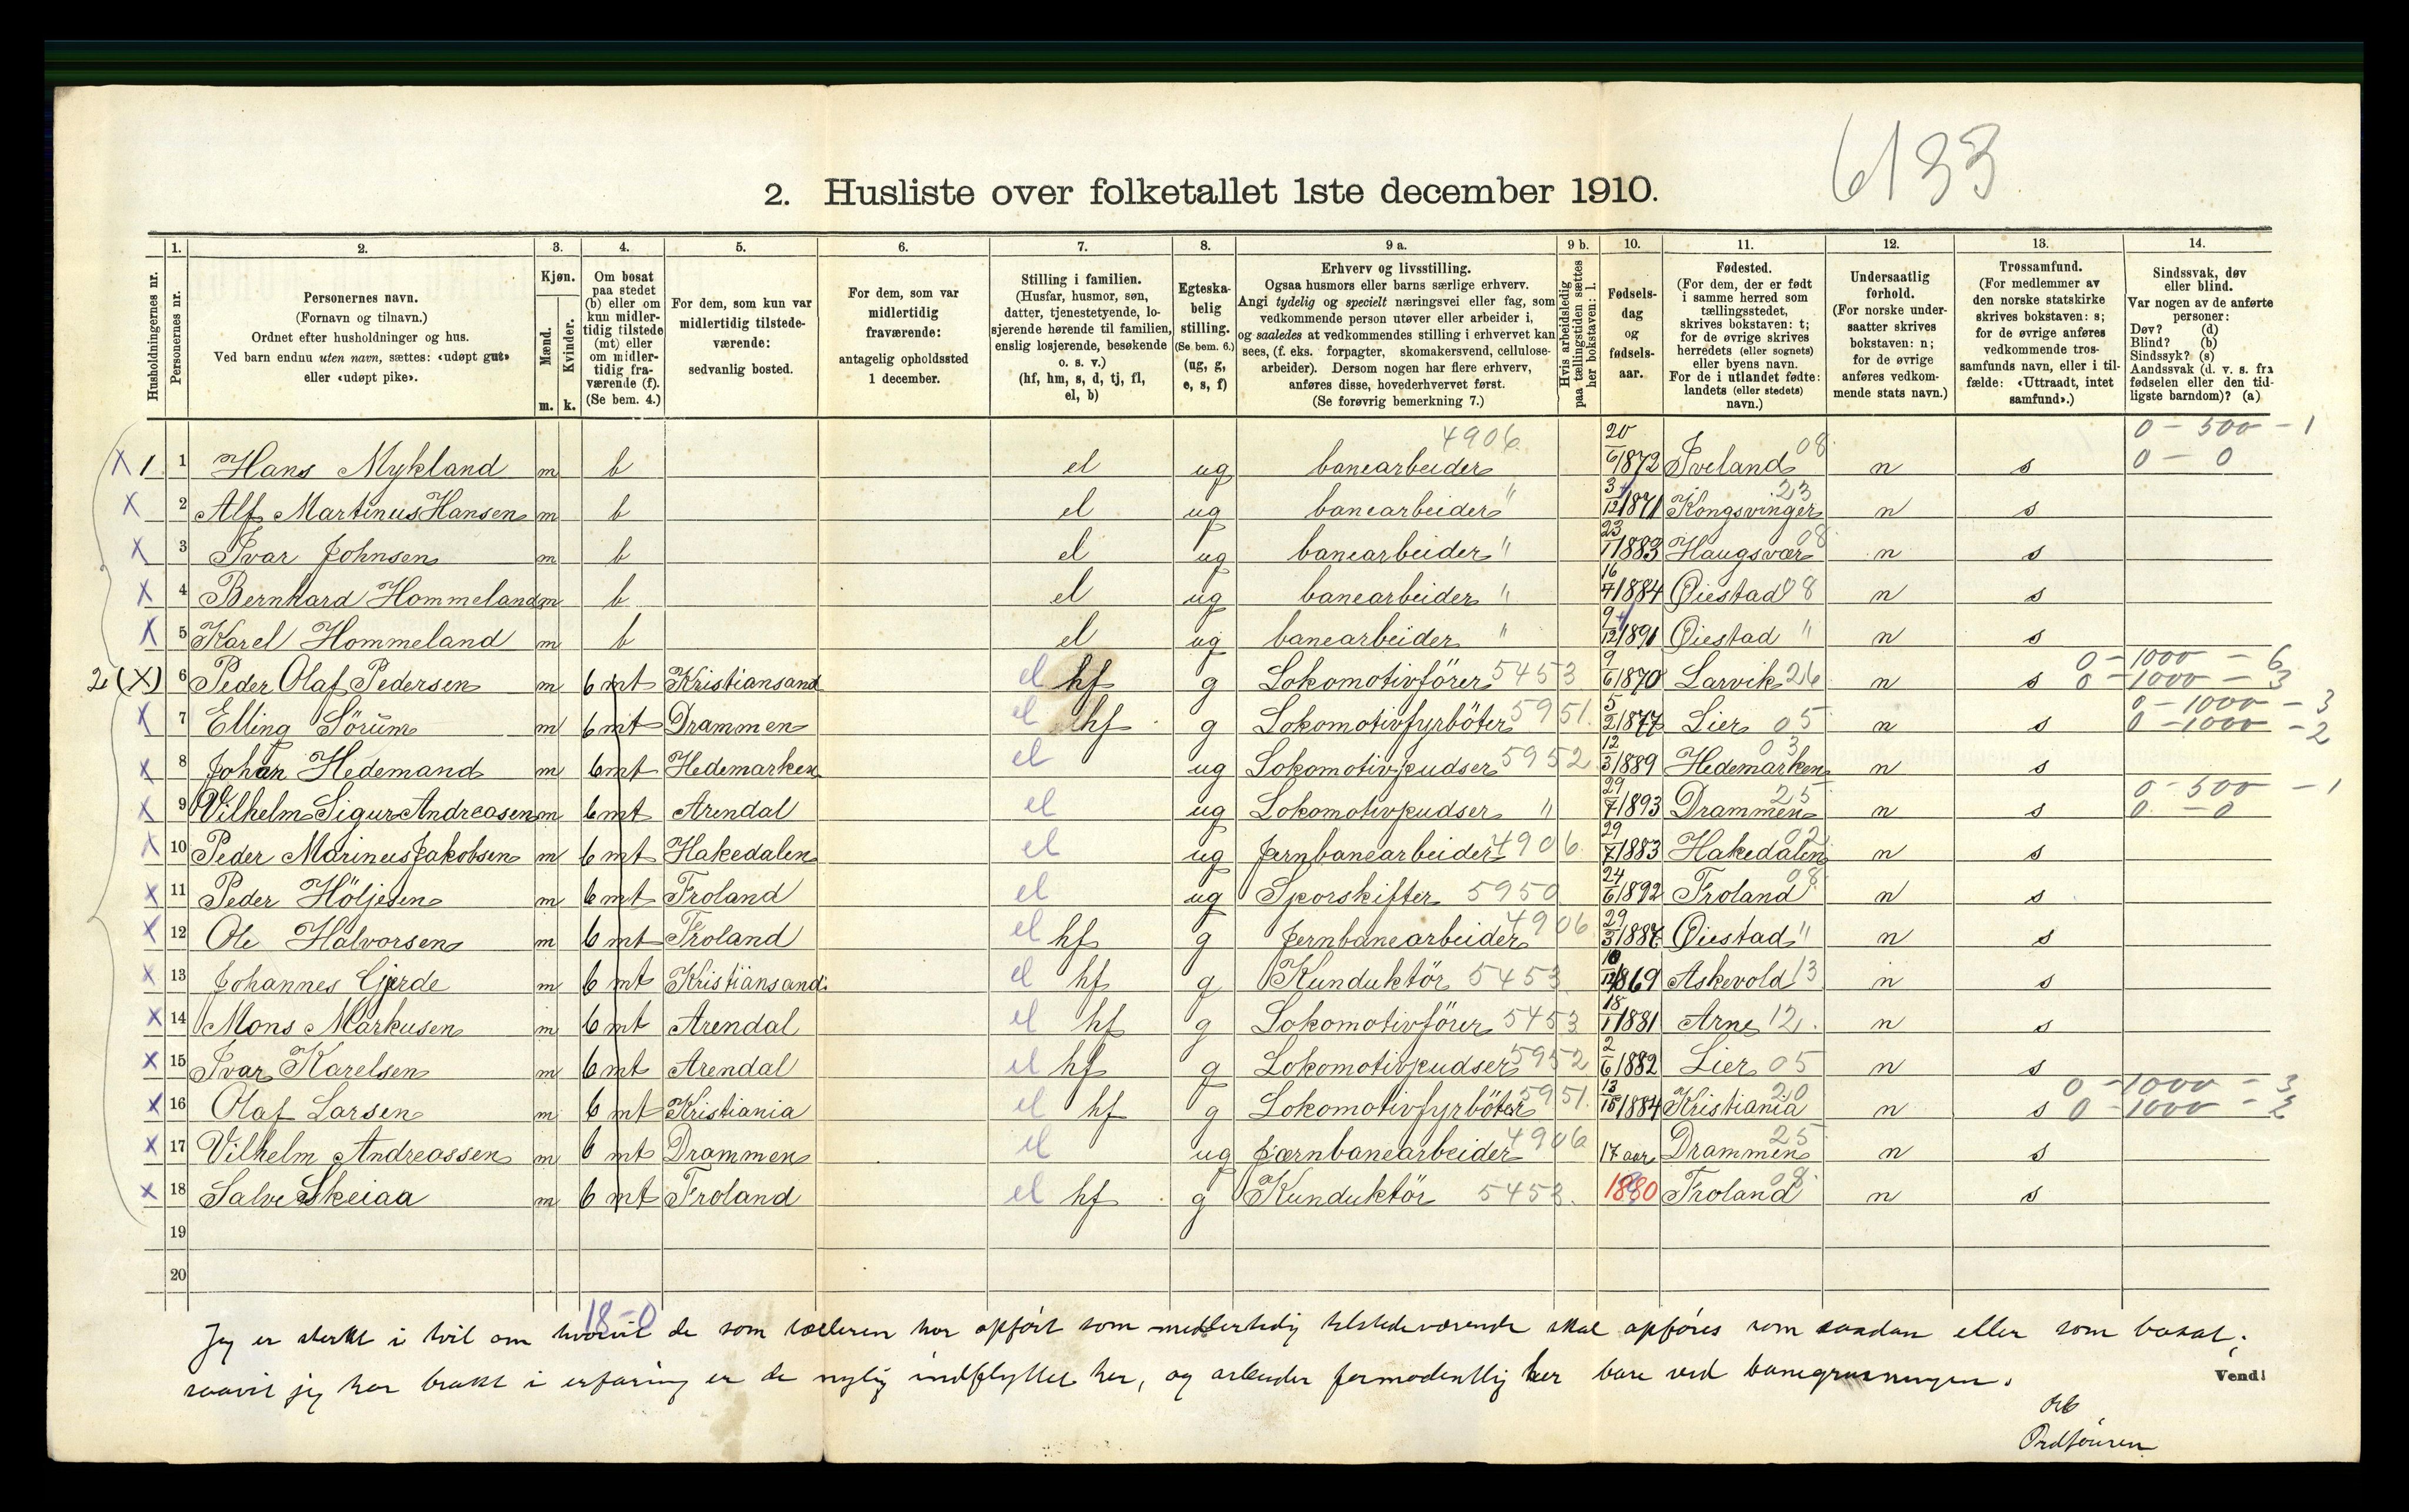 6133
2. Husliste over folketallet 1ste december 1910.
Husholdningernes nr.
1. Personernes nr.
2. Personernes navn.
(Fornavn og tilnavn.)
Ordnet efter husholdninger og hus.
Ved barn endnu uten navn, sættes: «udøpt gut»
eller «udøpt pike».
3. Kjøn.
Mænd. m.
Kvinder. k.
4. Om bosat
paa stedet
(b) eller om
kun midler-
tidig tilstede
(mt) eller
om midler-
tidig fra-
værende (f).
(Se bem. 4.)
5. For dem, som kun var
midlertidig tilstede-
værende:
sedvanlig bosted.
6. For dem, som var
midlertidig
fraværende:
antagelig opholdssted
1 december.
7. Stilling i familien.
(Husfar, husmor, søn,
datter, tjenestetyende, lo-
sjerende hørende til familien,
enslig losjerende, besøkende
o. s. v.)
(hf, hm, s, d, tj, fl,
el, b)
8. Egteska-
belig
stilling.
(Se bem. 6.)
(ug, g,
e, s, f)
9 a. Erhverv og livsstilling.
Ogsaa husmors eller barns særlige erhverv.
Angi tydelig og specielt næringsvei eller fag, som
vedkommende person utøver eller arbeider i,
og saaledes at vedkommendes stilling i erhvervet kan
sees, (f. eks. forpagter, skomakersvend, cellulose-
arbeider). Dersom nogen har flere erhverv,
anføres disse, hovederhvervet først.
(Se forøvrig bemerkning 7.)
9 b. Hvis arbeidsledig
paa tællingstiden sættes
her bokstaven: l.
10. Fødsels-
dag
og
fødsels-
aar.
11. Fødested.
(For dem, der er født
i samme herred som
tællingsstedet,
skrives bokstaven: t;
for de øvrige skrives
herredets (eller sognets)
eller byens navn.
For de i utlandet fødte:
landets (eller stedets)
navn.)
12. Undersaatlig
forhold.
(For norske under-
saatter skrives
bokstaven: n;
for de øvrige
anføres vedkom-
mende stats navn.)
13. Trossamfund.
(For medlemmer av
den norske statskirke
skrives bokstaven: s;
for de øvrige anføres
vedkommende tros-
samfunds navn, eller i til-
fælde: «Uttraadt, intet
samfund».)
14. Sindssvak, døv
eller blind.
Var nogen av de anførte
personer:
Døv? (d)
Blind? (b)
Sindssyk? (s)
Aandssvak (d. v. s. fra
fødselen eller den tid-
ligste barndom)? (a)
X 1. 1 Hans Mykland m b el ug banearbeider 4906 20/6 1872 Iveland 08 n s 0 - 500 - 1 0 - 0
X 2 Alf Martinus Hansen m b el ug banearbeider " 3/12 1871 Kongsvinger 23 n s
X 3 Ivar Johnsen m b el ug banearbeider " 23/1 1883 Haugsvær 08 n s
X 4 Bernhard Hommeland m b el ug banearbeider " 16/7 1884 Øiestad 08 n s
X 5 Karel Hommeland m b el ug banearbeider " 9/12 1891 Øiestad " n s
2 (X) 6 Peder Olaf Pedersen m b mt Kristiansand el hf g Lokomotivförer 5453 9/6 1870 Larvik 26 n s 0 - 1000 - 6 0 - 1000 - 3
X 7 Elling Sörum m b mt Drammen el hf g Lokomotivfyrböter 5951. 5/2 1877 Lier 05 n s 0 - 1000 - 3 0 - 1000 - 2
X 8 Johan Hedemand m b mt Hedemarken el ug Lokomotivpudser 5952 12/3 1889 Hedemarken 03 n s
X 9 Vilhelm Sigur Andreasen m b mt Arendal el ug Lokomotivpudser " 29/7 1893 Drammen 25 n s 0 - 500 - 1 0 - 0
X 10 Peder Marinus Jakobsen m b mt Hakedalen el ug Jernbanearbeider 4906 29/7 1883 Hakedalen 02 n s
X 11 Peder Höljesen m b mt Froland el ug Sporskifter 5950 24/6 1892 Froland 08 n s
X 12 Ole Halvorsen m b mt Froland el hf g Jernbanearbeider 4906 29/3 1887 Øiestad " n s
X 13 Johannes Gjerde m b mt Kristiansand el hf g Kunduktör 5453 10/12 1869 Askevold 13 n s
X 14 Mons Markusen m b mt Arendal el hf g Lokomotivförer 5453 18/1 1881 Arne 12. n s
X 15 Ivar Karelsen m b mt Arendal el hf g Lokomotivpudser 5952 2/6 1882 Lier 05 n s
X 16 Olaf Larsen m b mt Kristiania el hf g Lokomotivfyrböter 5951. 1884 Kristiania 20 n s 0 - 1000 - 3 0 - 1000 - 2
X 17 Vilhelm Andreassen m b mt Drammen el ug Jærnbanearbeider 4906 17 aar Drammen 25 n s
X 18 Salve Skeiaa m b mt Froland el hf g Kunduktör 5453. 1880 Froland 08 n s
19
20
18 - 0
Jeg er sterkt i tvil om hvorvit de som tælleren har opført som midlertidig tilstedeværende skal opføres som saadan eller som bosat.
saavit jeg har brakt i erfaring er de nylig indflyttet her, og arbeider formodentlig her bare ved banegrusningen.
Vend!
Ordföreren